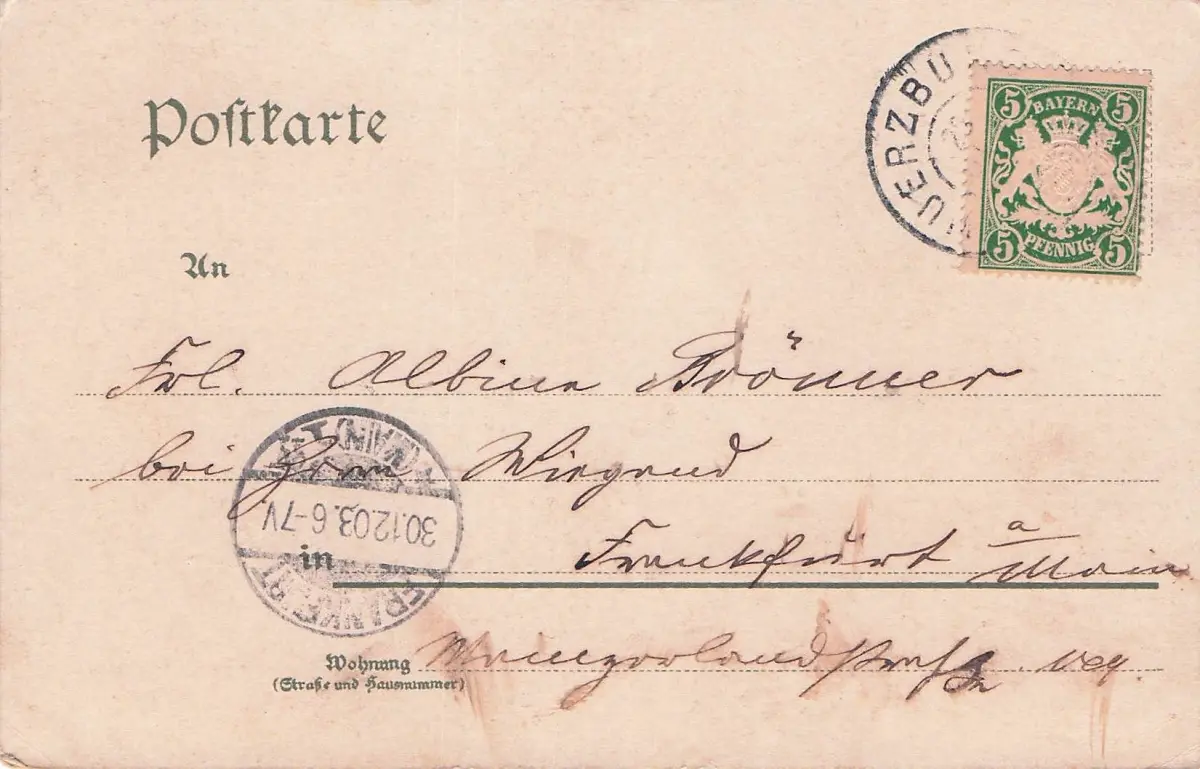 Postkarte
WUERZBU
5 BAYERN 5
5 PFENNIG 5
An
Frl. Albina Brönner
bei Herrn Wiegand
FRANKF
30.12.03. 6-7V.
in Frankfurt a/Main
Wohnung Mainzerlandstraße
(Straße und Hausnummer)